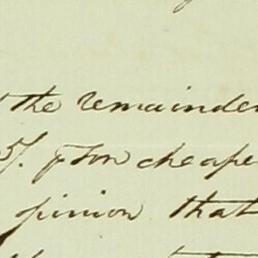 the remainder
5/. p ton cheape
pinion that